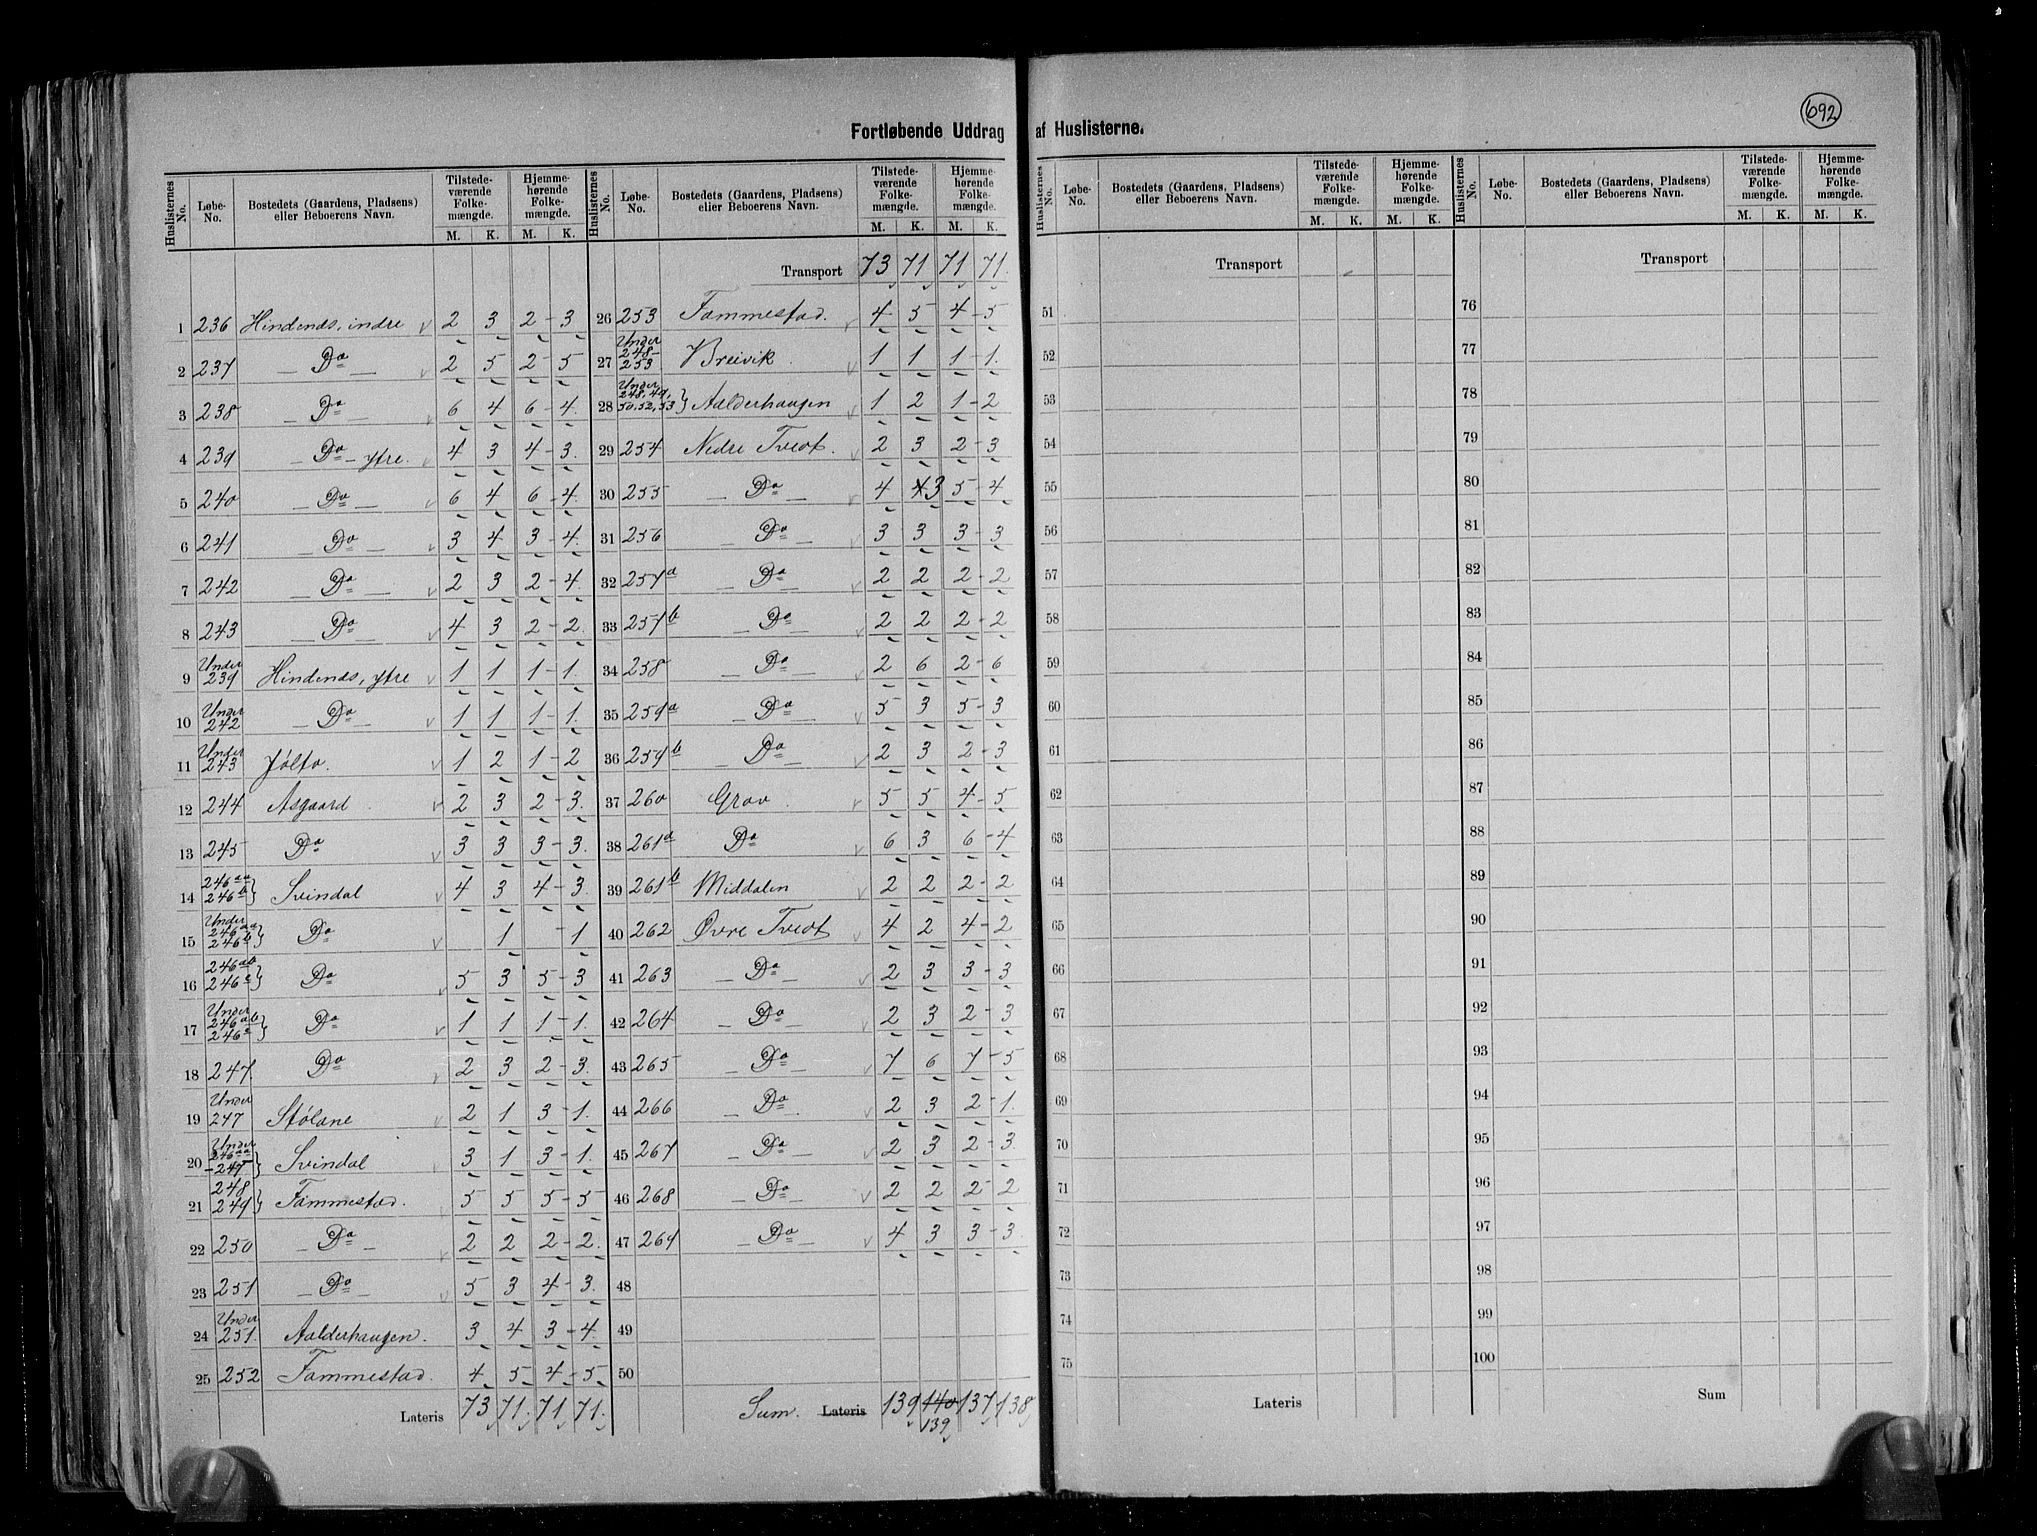 692
Fortløbende Uddrag af Huslisterne.
Huslisternes No. | Løbe-No. | Bostedets (Gaardens, Pladsens) eller Beboerens Navn. | Tilstede-værende Folke-mængde. M. K. | Hjemme-hørende Folke-mængde. M. K.
1 236 Hindenæs, indre 2 3 2 - 3
2 237 — Do — 2 5 2 - 5
3 238 Do — 6 4 6 - 4.
4 239 — Do — ytre. 4 3 4 - 3.
5 240 — Do — 6 4 6 - 4.
6 241 — Do — 3 4 3 - 4.
7 242 — Do — 2 3 2 - 4.
8 243 — Do — 4 3 2 - 2.
9 Under 239 Hindenæs, ytre 1 1 1 - 1.
10 Under 242 — Do — 1 1 1 - 1.
11 Under 243 Jølto. 1 2 1 - 2
12 244 Asgaard 2 3 2 - 3.
13 245 Do 3 3 3 - 3.
14 246aa 246b } Svindal 4 3 4 - 3.
15 Under 246aa 246b } Do 1 - 1
16 246ab 246c } Do 5 3 5 - 3
17 Under 246ab 246c } Do 1 1 1 - 1.
18 247. Do 2 3 2 - 3.
19 Under 247 Stølane 2 1 3 - 1.
20 Under 246aa - 247 } Svindal 3 1 3 - 1.
21 248 249 } Tammestad. 5 5 5 - 5
22 250 — Do — 2 2 2 - 2.
23 251 — Do — 5 3 4 - 3.
24 Under 251. Aalderhaugen. 3 4 3 - 4.
25 252 Tammestad. 4 5 4 - 5
Lateris 73 71. 71 71.
Huslisternes No. | Løbe-No. | Bostedets (Gaardens, Pladsens) eller Beboerens Navn. | Tilstede-værende Folke-mængde. M. K. | Hjemme-hørende Folke-mængde. M. K.
Transport 73 71 71 71.
26 253 Tammestad. 4 5 4 - 5
27 Under 248 - 253 Breivik 1 1 1 - 1.
28 Under 248, 49, 50, 52, 53 } Aalderhaugen 1 2 1 - 2
29 254 Nedre Tvedt. 2 3 2 - 3
30 255 — Do — 4 4 3 5 - 4
31 256 Do — 3 3 3 - 3
32 257a — Do 2 2 2 - 2
33 257b — Do — 2 2 2 - 2
34 258 — Do — 2 6 2 - 6
35 259a — Do — 5 3 5 - 3
36 259b — Do — 2 3 2 - 3
37 260 Grav. 5 5 4 - 5
38 261a Do 6 3 6 - 4
39 261b Middalen 2 2 2 - 2
40 262 Øvre Tvedt 4 2 4 - 2
41 263 — Do — 2 3 3 - 3
42 264 — Do — 2 3 2 - 3
43 265 — Do — 7 6 7 - 5
44 266 — Do — 2 3 2 - 1.
45 267 — Do — 2 3 2 - 3.
46 268 — Do — 2 2 2 - 2
47 269 — Do — 4 3 3 - 3.
48
49
50
Sum. Lateris 139 140 137 138
139
Huslisternes No. | Løbe-No. | Bostedets (Gaardens, Pladsens) eller Beboerens Navn. | Tilstede-værende Folke-mængde. M. K. | Hjemme-hørende Folke-mængde. M. K.
Transport
51
52
53
54
55
56
57
58
59
60
61
62
63
64
65
66
67
68
69
70
71
72
73
74
75
Lateris
Huslisternes No. | Løbe-No. | Bostedets (Gaardens, Pladsens) eller Beboerens Navn. | Tilstede-værende Folke-mængde. M. K. | Hjemme-hørende Folke-mængde. M. K.
Transport
76
77
78
79
80
81
82
83
84
85
86
87
88
89
90
91
92
93
94
95
96
97
98
99
100
Sum